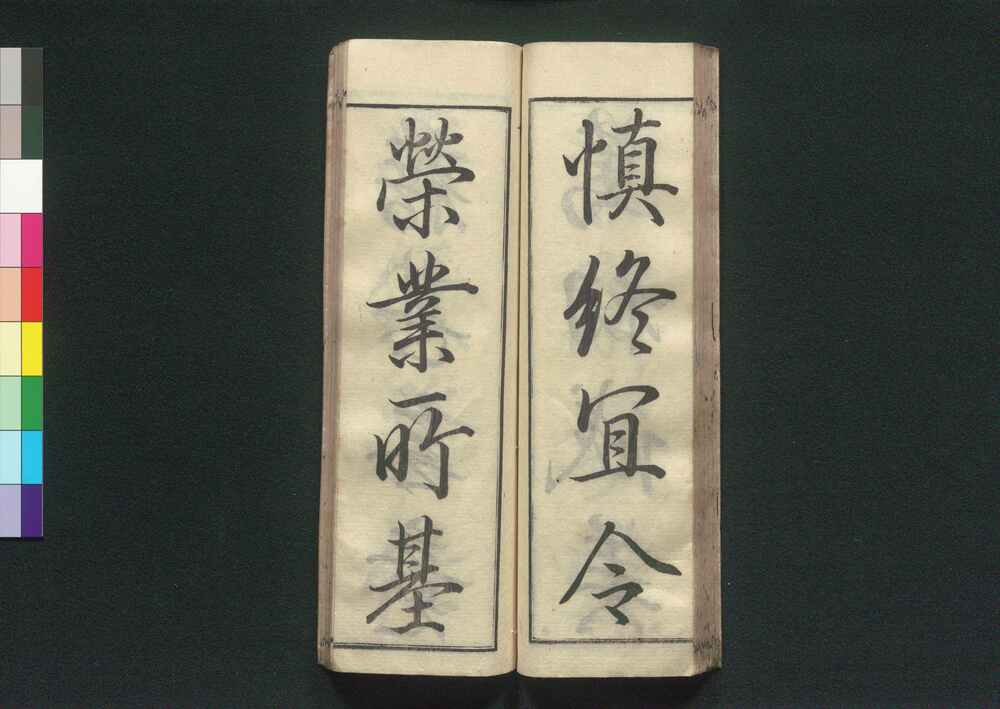 慎終宜令
榮業所基